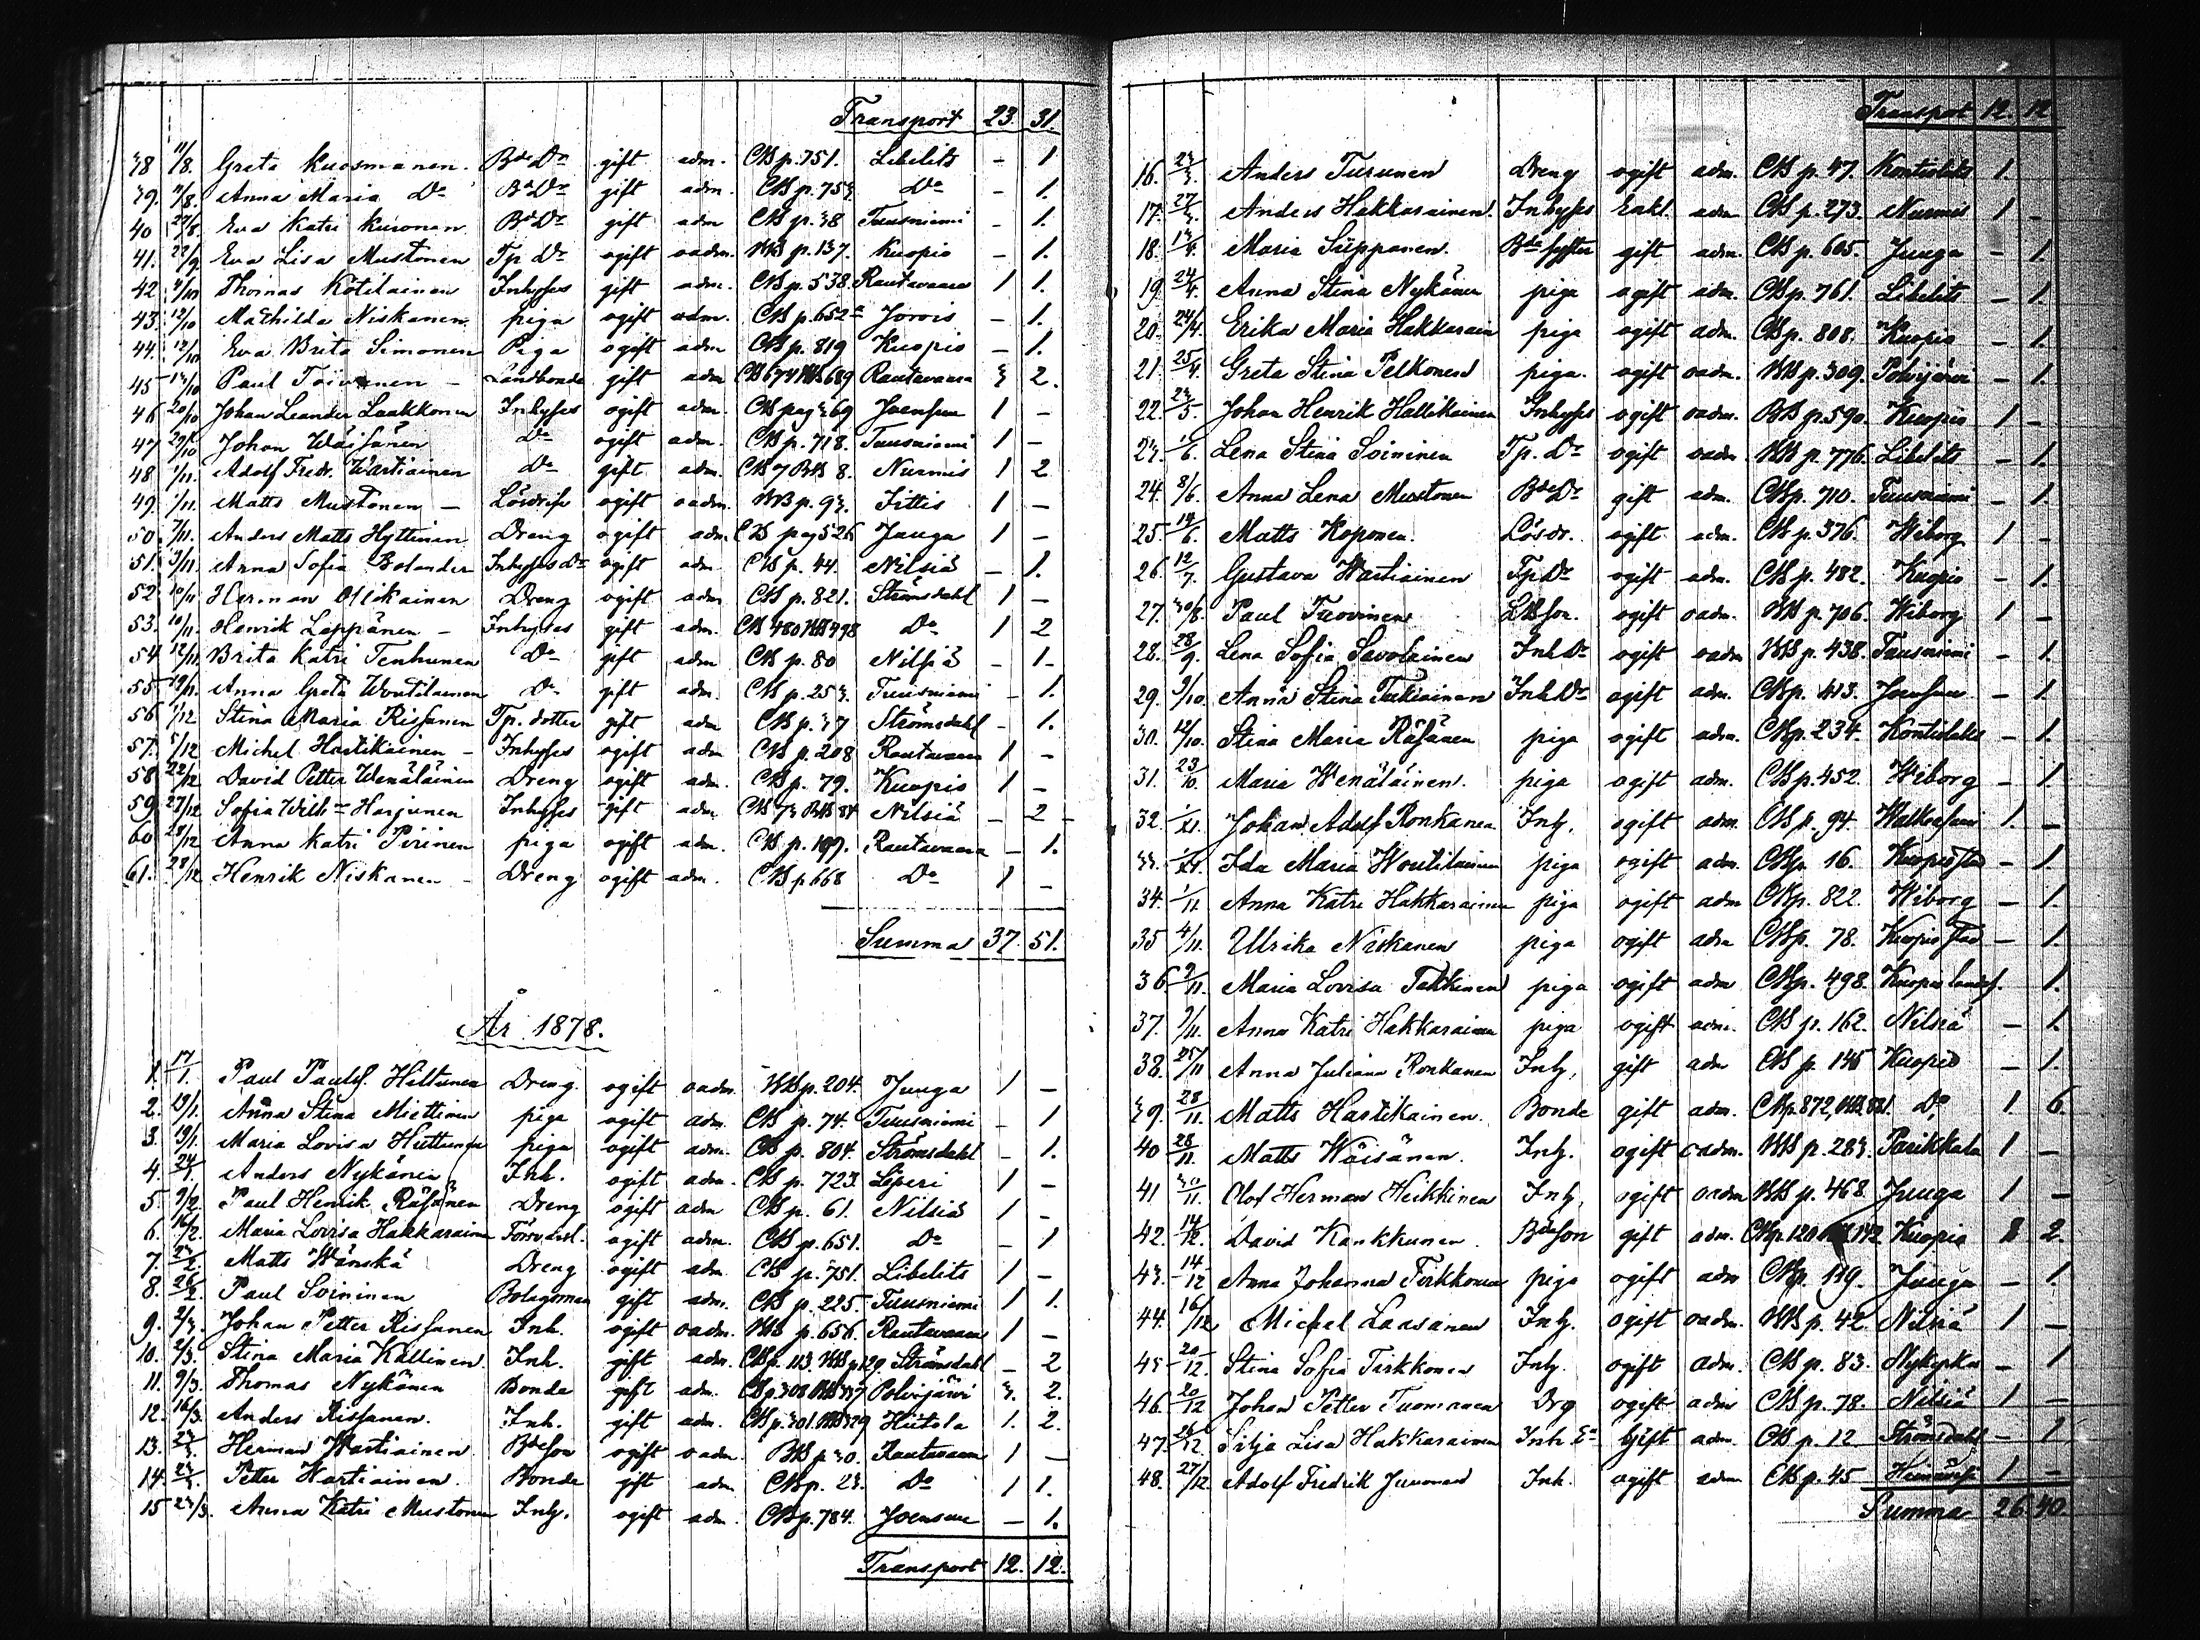 Transport 23. 31.
38 11/8. Greta Kuosmanen. Bde Dr gift adm. CB p. 751. Libelits - 1
39. 11/8. Anna Maria Do Bde Dr gift adm. CB p. 753. Do - 1.
40 27/8. Eva Katri Kuronen Bde Dr gift adm CB p. 38 Tuusniemi - 1.
41. 22/9. Eva Lisa Mustonen Tp Dr ogift oadm. WB p. 137. Kuopio - 1.
42 4/10 Thomas Kotilainen Inhyses gift adm. CB p. 538. Rautavaara 1 1.
43. 12/10 Mathilda Niskanen piga ogift adm. CB p. 652 Jorois - 1.
44. 12/10 Eva Brita Simonen Piga ogift adm CB p. 819 Kuopio - 1.
45 13/10 Paul Toivanen - Landbonde gift adm CB 674 WB 689 Rautavaara 3 2.
46 20/10 Johan Leander Laakkonen Inhyses ogift adm. CB pag 369 Joensuu 1 -
47 29/10 Johan Wäisänen Do ogift adm. CB p. 718. Tuusniemi 1 -
48 1/11. Adolf Fredr. Wartiainen Do gift adm. CB 7 BB 8. Nurmis 1 2
49. 1/11. Matts Mustonen - Lösdrifv ogift oadm. WB p. 93. Jittis 1 -
50 7/11. Anders Matts Hyttinen Dreng ogift adm. CB pag 526 Juuga 1 -
51. 9/11. Anna Sofia Bolander Inhyses Dr ogift adm. CB p. 44. Nilsiä - 1.
52 10/11 Herman Ollikainen Dreng ogift adm CB p. 821. Strömsdahl 1 -
53. 10/11. Henrik Leppänen - Inhyses gift adm. CB 480 WB 498 Do 1 2
54 12/11 Brita Katri Tenhunen Do gift adm CB p. 80 Nilsiä - 1-
55 19/11. Anna Greta Woutilainen Do gift adm. CB p. 253. Tuusniemi - 1.
56 1/12 Stina Maria Rissanen Tp. dotter gift adm CB p. 37 Strömsdahl - 1.
57. 5/12 Michel Hartikainen - Inhyses ogift adm CB p. 208 Rautavaara 1 -
58 22/12 David Petter Wenäläinen Dreng ogift adm. CB p. 79. Kuopio 1 -
59. 27/12 Sofia Wilhna Harjunen Inhyses gift adm. CB 73 BB 84 Nilsiä - 2 -
60 28/12 Anna Katri Pirinen piga ogift adm. CB p. 199. Rautavaara - 1.
61. 28/12 Henrik Niskanen - Dreng ogift adm. CB p. 668 Do 1 -
Summa 37. 51.
År 1878.
1. 17/1. Paul Paulss. Hiltunen Dreng ogift oadm. WB p. 204. Juuga 1 -
2. 19/1. Anna Stina Miettinen piga ogift adm. CB p. 74. Tuusniemi - 1
3. 19/1. Maria Lovisa Huttunen piga ogift adm. CB p. 804. Strömsdahl - 1.
4. 24/1. Anders Nykänen Inh. ogift adm. CB p. 723. Liperi 1 -
5. 9/2. Paul Henrik Räsänen Dreng ogift adm CB p. 61. Nilsiä 1 -
6. 16/2. Maria Lovisa Hakkarainen ogift adm. CB p. 651. Do - 1
7. 23/2. Matts Wänskä Dreng ogift adm. CB p. 751. Libelits 1 -
8. 26/2. Paul Soininen Bolagsman gift adm. CB p. 225. Tuusniemi 1 1.
9. 2/3. Johan Petter Rissanen Inh. ogift oadm. WB p. 656. Rautavaara 1 -
10. 2/3. Stina Maria Kallinen Inh. gift adm. CB p. 113. WB p 129. Strömsdahl - 2
11. 9/3. Thomas Nykänen Bonde gift adm. CB p. 308 WB 337 Polvijärvi 3. 2.
12. 16/3. Anders Rissanen. Inh. gift adm. CB p. 301. WB 329 Hiitola 1. 2.
13. 23/3. Herman Wartiainen Bdeson ogift oadm. BB p 30. Rautavaara 1 -
14. 23/3. Petter Wartiainen Bonde gift adm CB p. 23. Do 1 1.
15 23/3. Anna Katri Mustonen Inhy. ogift adm. CB p. 784. Joensuu - 1.
Transport 12. 12.
Transport 12. 12
16. 23/3. Anders Turunen Dreng ogift adm. CB p. 47. Kontiolaks 1.
17. 27/3. Anders Hakkarainen. Inhyses Enkl. adm CB p. 273. Nurmis 1 -
18. 13/4. Maria Sirppanen. Bde syster gift adm. CB p. 605. Juuga - 1.
19. 24/4. Anna Stina Nykänen piga ogift adm. CB p. 761. Libelits - 1.
20. 24/4. Erika Maria Hakkarain piga ogift adm. CB p. 808. Kuopio - 1.
21. 25/4. Greta Stina Pelkonen piga. ogift oadm. WB p. 309. Polvijärvi - 1.
22. 23/5. Johan Henrik Hallikainen Inhyses ogift oadm. BB p. 590. Kuopio 1 -
23. 1/6. Lena Stina Soininen Tp. Dr ogift oadm WB p. 776. Libelits - 1.
24. 8/6. Anna Lena Mustonen Bde Dr gift adm. CB p. 710. Tuusniemi - 1.
25. 14/6. Matts Koponen. Lösdr. ogift adm. CB p. 376. Wiborg 1 -
26. 12/7. Gustava Wartiainen Tp Dr ogift adm. CB p. 482. Kuopio - 1.
27. 30/8. Paul Tuovinen LBson. ogift oadm. WB p. 706. Wiborg 1 -
28. 28/9. Lena Sofia Savolainen Inh Dr ogift oadm WB p. 438. Tuusniemi - 1.
29. 9/10. Anna Stina Tukiainen Inh Dr ogift adm. CB p. 413. Joensuu - 1.
30. 12/10. Stina Maria Räsänen piga ogift adm. CB p. 234. Kontiolaks - 1.
31. 23/10. Maria Wenäläinen. piga ogift adm. CB p. 452. Wiborg - 1.
32. 1/11. Johan Adolf Ronkanen Inhy. ogift adm. CB p. 94. Walkeasaari 1. -
33. 1/11. Ida Maria Woutilainen piga ogift adm. CB p. 16. Kuopio stad - 1.
34. 1/11. Anna Katri Hakkarainen piga ogift adm CB p. 822. Wiborg - 1.
35 4/11. Ulrika Niskanen piga ogift adm CB p. 78. Kuopio stad - 1.
36. 9/11. Maria Lovisa Takkinen piga ogift adm CB p. 498. Kuopio landsf. 1.
37. 9/11. Anna Katri Hakkarainen piga ogift adm. CB p. 162. Nilsiä - 1.
38. 25/11 Anna Juliana Ronkanen Inhy. gift adm CB p. 145 Kuopio - 1.
39. 28/11. Matts Hartikainen. Bonde gift adm. CB p. 872, WB 881. Do 1. 6.
40 28/11. Matts Wäisänen. Inhy. ogift oadm. WB p. 283. Parikkala 1 -
41 30/11. Olof Herman Heikkinen Inhy. ogift oadm WB p. 468. Juuga 1 -
42. 14/12. David Kankkunen. Bdeson gift adm. CB p. 120 142 Kuopio 2.
43. 14/12 Anna Johanna Tirkkonen piga ogift adm CB p. 119. Juuga - 1.
44. 16/12 Michel Laasanen Inhy. ogift oadm. WB p. 42. Nilsiä 1 -
45 20/12. Stina Sofia Tirkkonen Inhy. ogift adm. CB p. 83. Nykyrka - 1
46. 20/12 Johan Petter Tuomanen Drg ogift adm CB p. 78. Nilsiä 1 -
47. 26/12. Silja Lisa Hakkarainen Inh. Ea Gift adm. CB p. 12 Strömsdahl - 1
48. 27/12. Adolf Fredrik Juvonen Inh. ogift adm CB p. 45 1 -
Summa 26 40.